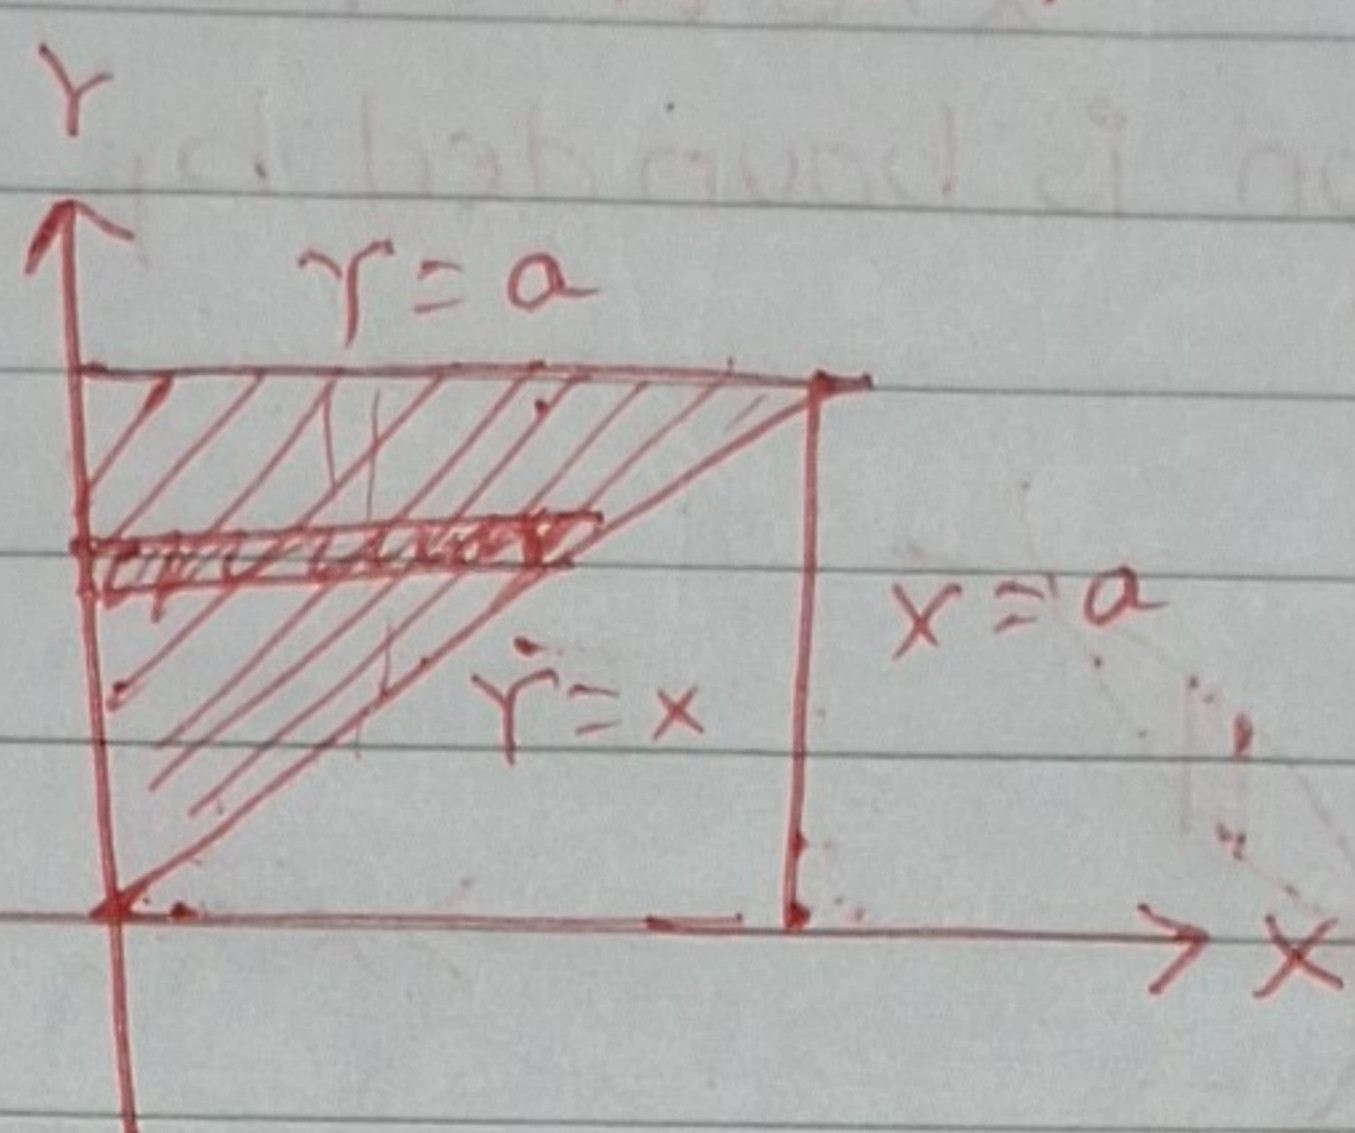 Y
Y = a
X = a
Y = x
X